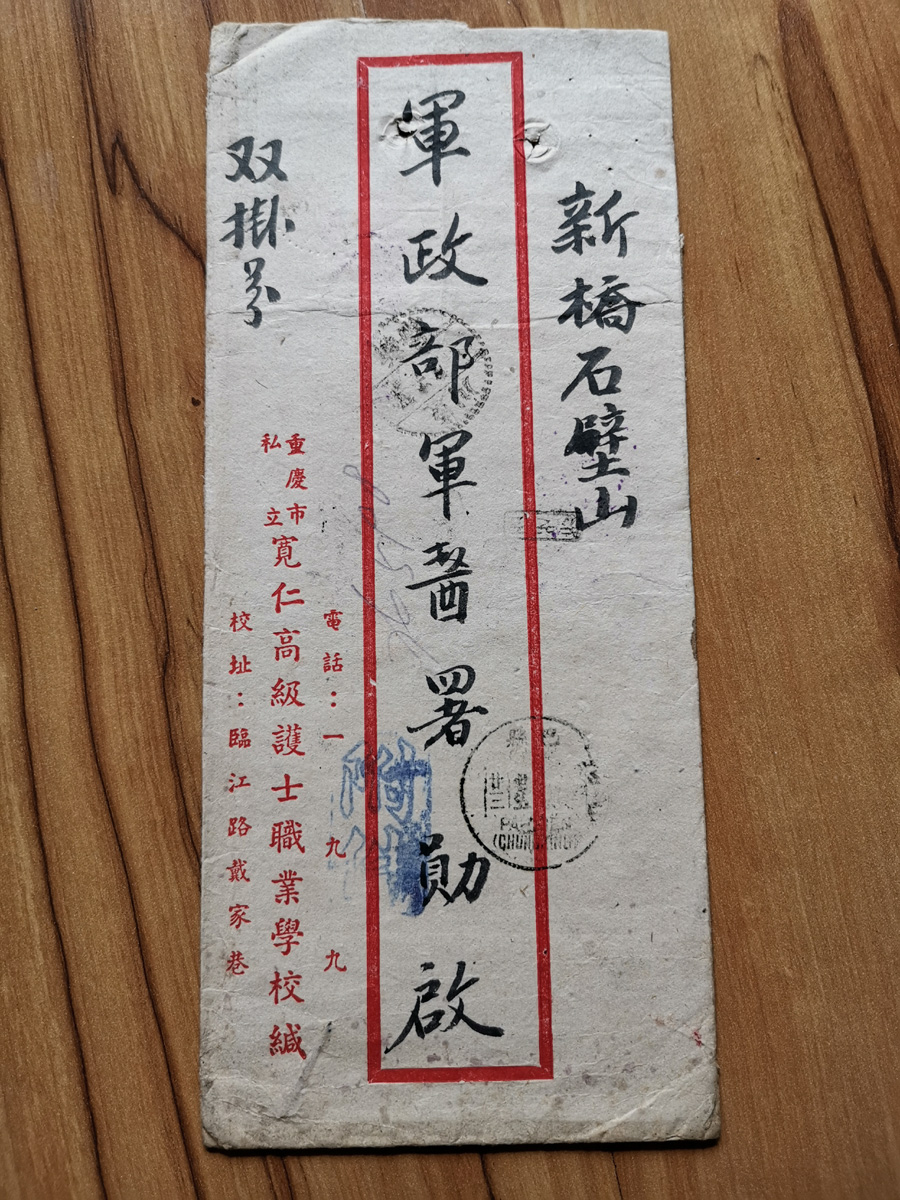 新橋石壁山
軍政部軍醫署勛啟
電話：一九九
重慶市
私立
寬仁高級護士職業學校緘
校址：臨江路戴家巷
双掛号
(CHUNGKING)